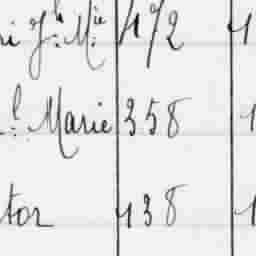 ri Jh Mie 472 1
l Marie 358 1
tor 438 1